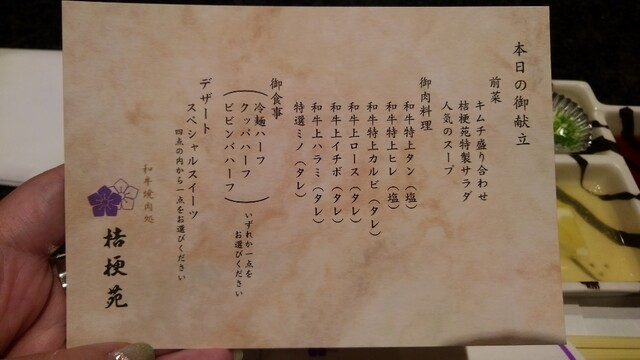 本日の御献立
前菜
キムチ盛り合わせ
桔梗苑特製サラダ
人気のスープ
御肉料理
和牛特上タン（塩）
和牛特上ヒレ（塩）
和牛特上カルビ（タレ）
和牛上ロース（タレ）
和牛上イチボ（タレ）
和牛上ハラミ（タレ）
特選ミノ（タレ）
御食事
冷麺ハーフ
クッパハーフ
ビビンバハーフ
いずれか一点を
お選びください
デザート
スペシャルスイーツ
四点の内から一点をお選びください
和牛焼肉処
桔梗苑